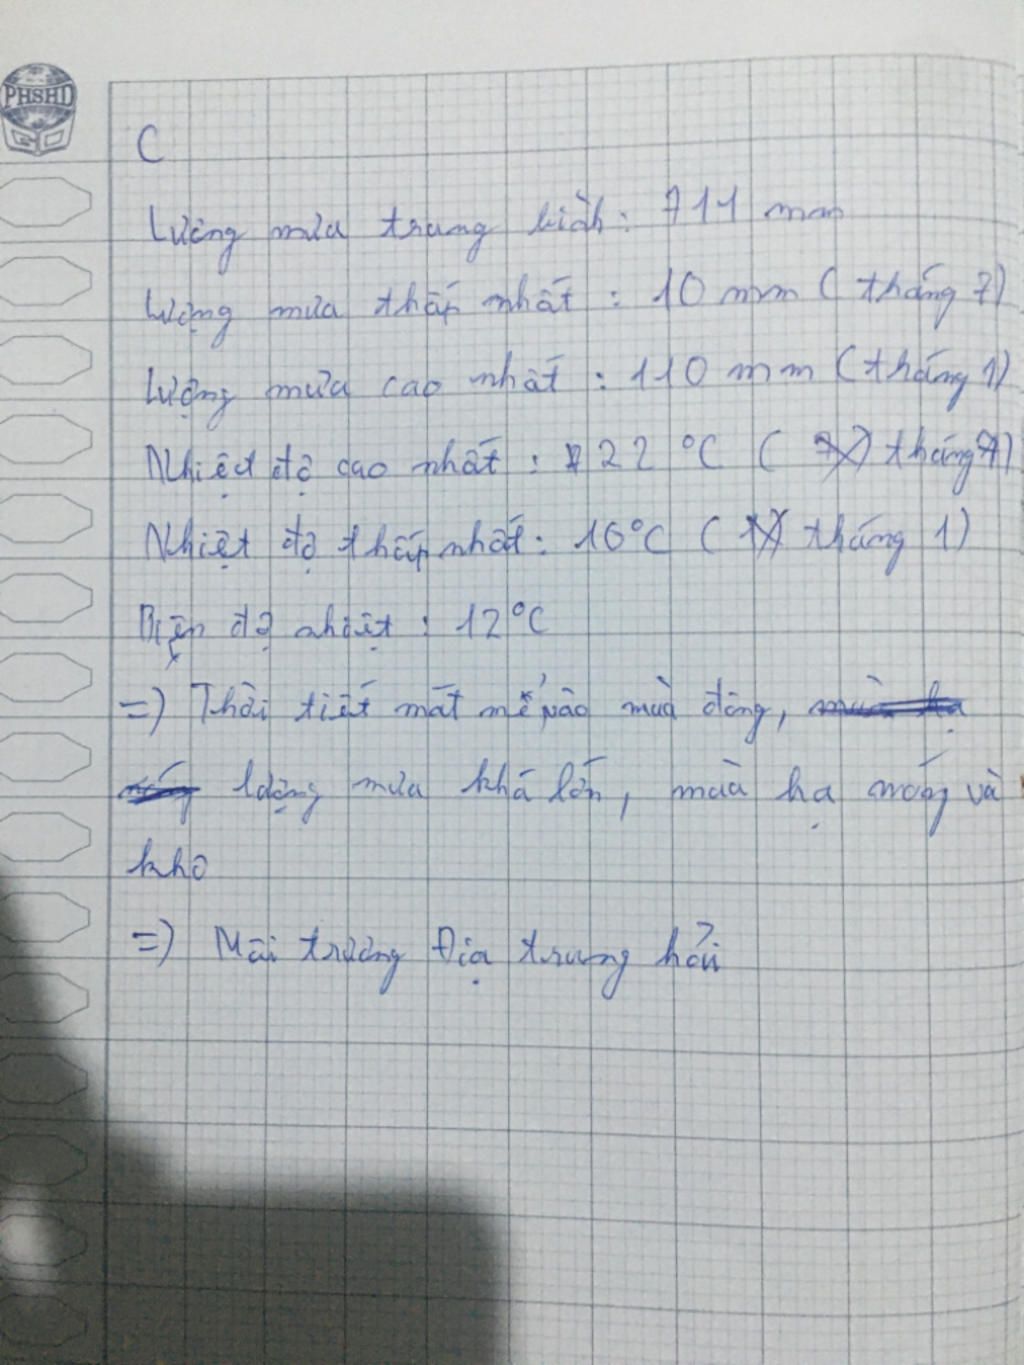 PHSHD
C
Lượng mưa trung bình: 711 mm
Lượng mưa thấp nhất: 10 mm (tháng 7)
Lượng mưa cao nhất: 110 mm (tháng 1)
Nhiệt độ cao nhất: 22 °C (tháng 7)
Nhiệt độ thấp nhất: 10°C (tháng 1)
Biên độ nhiệt: 12°C
=) Thời tiết mát mẻ vào mùa đông,
lượng mưa khá lớn, mùa hạ nóng và
kho
=) Môi trường Địa trung hải